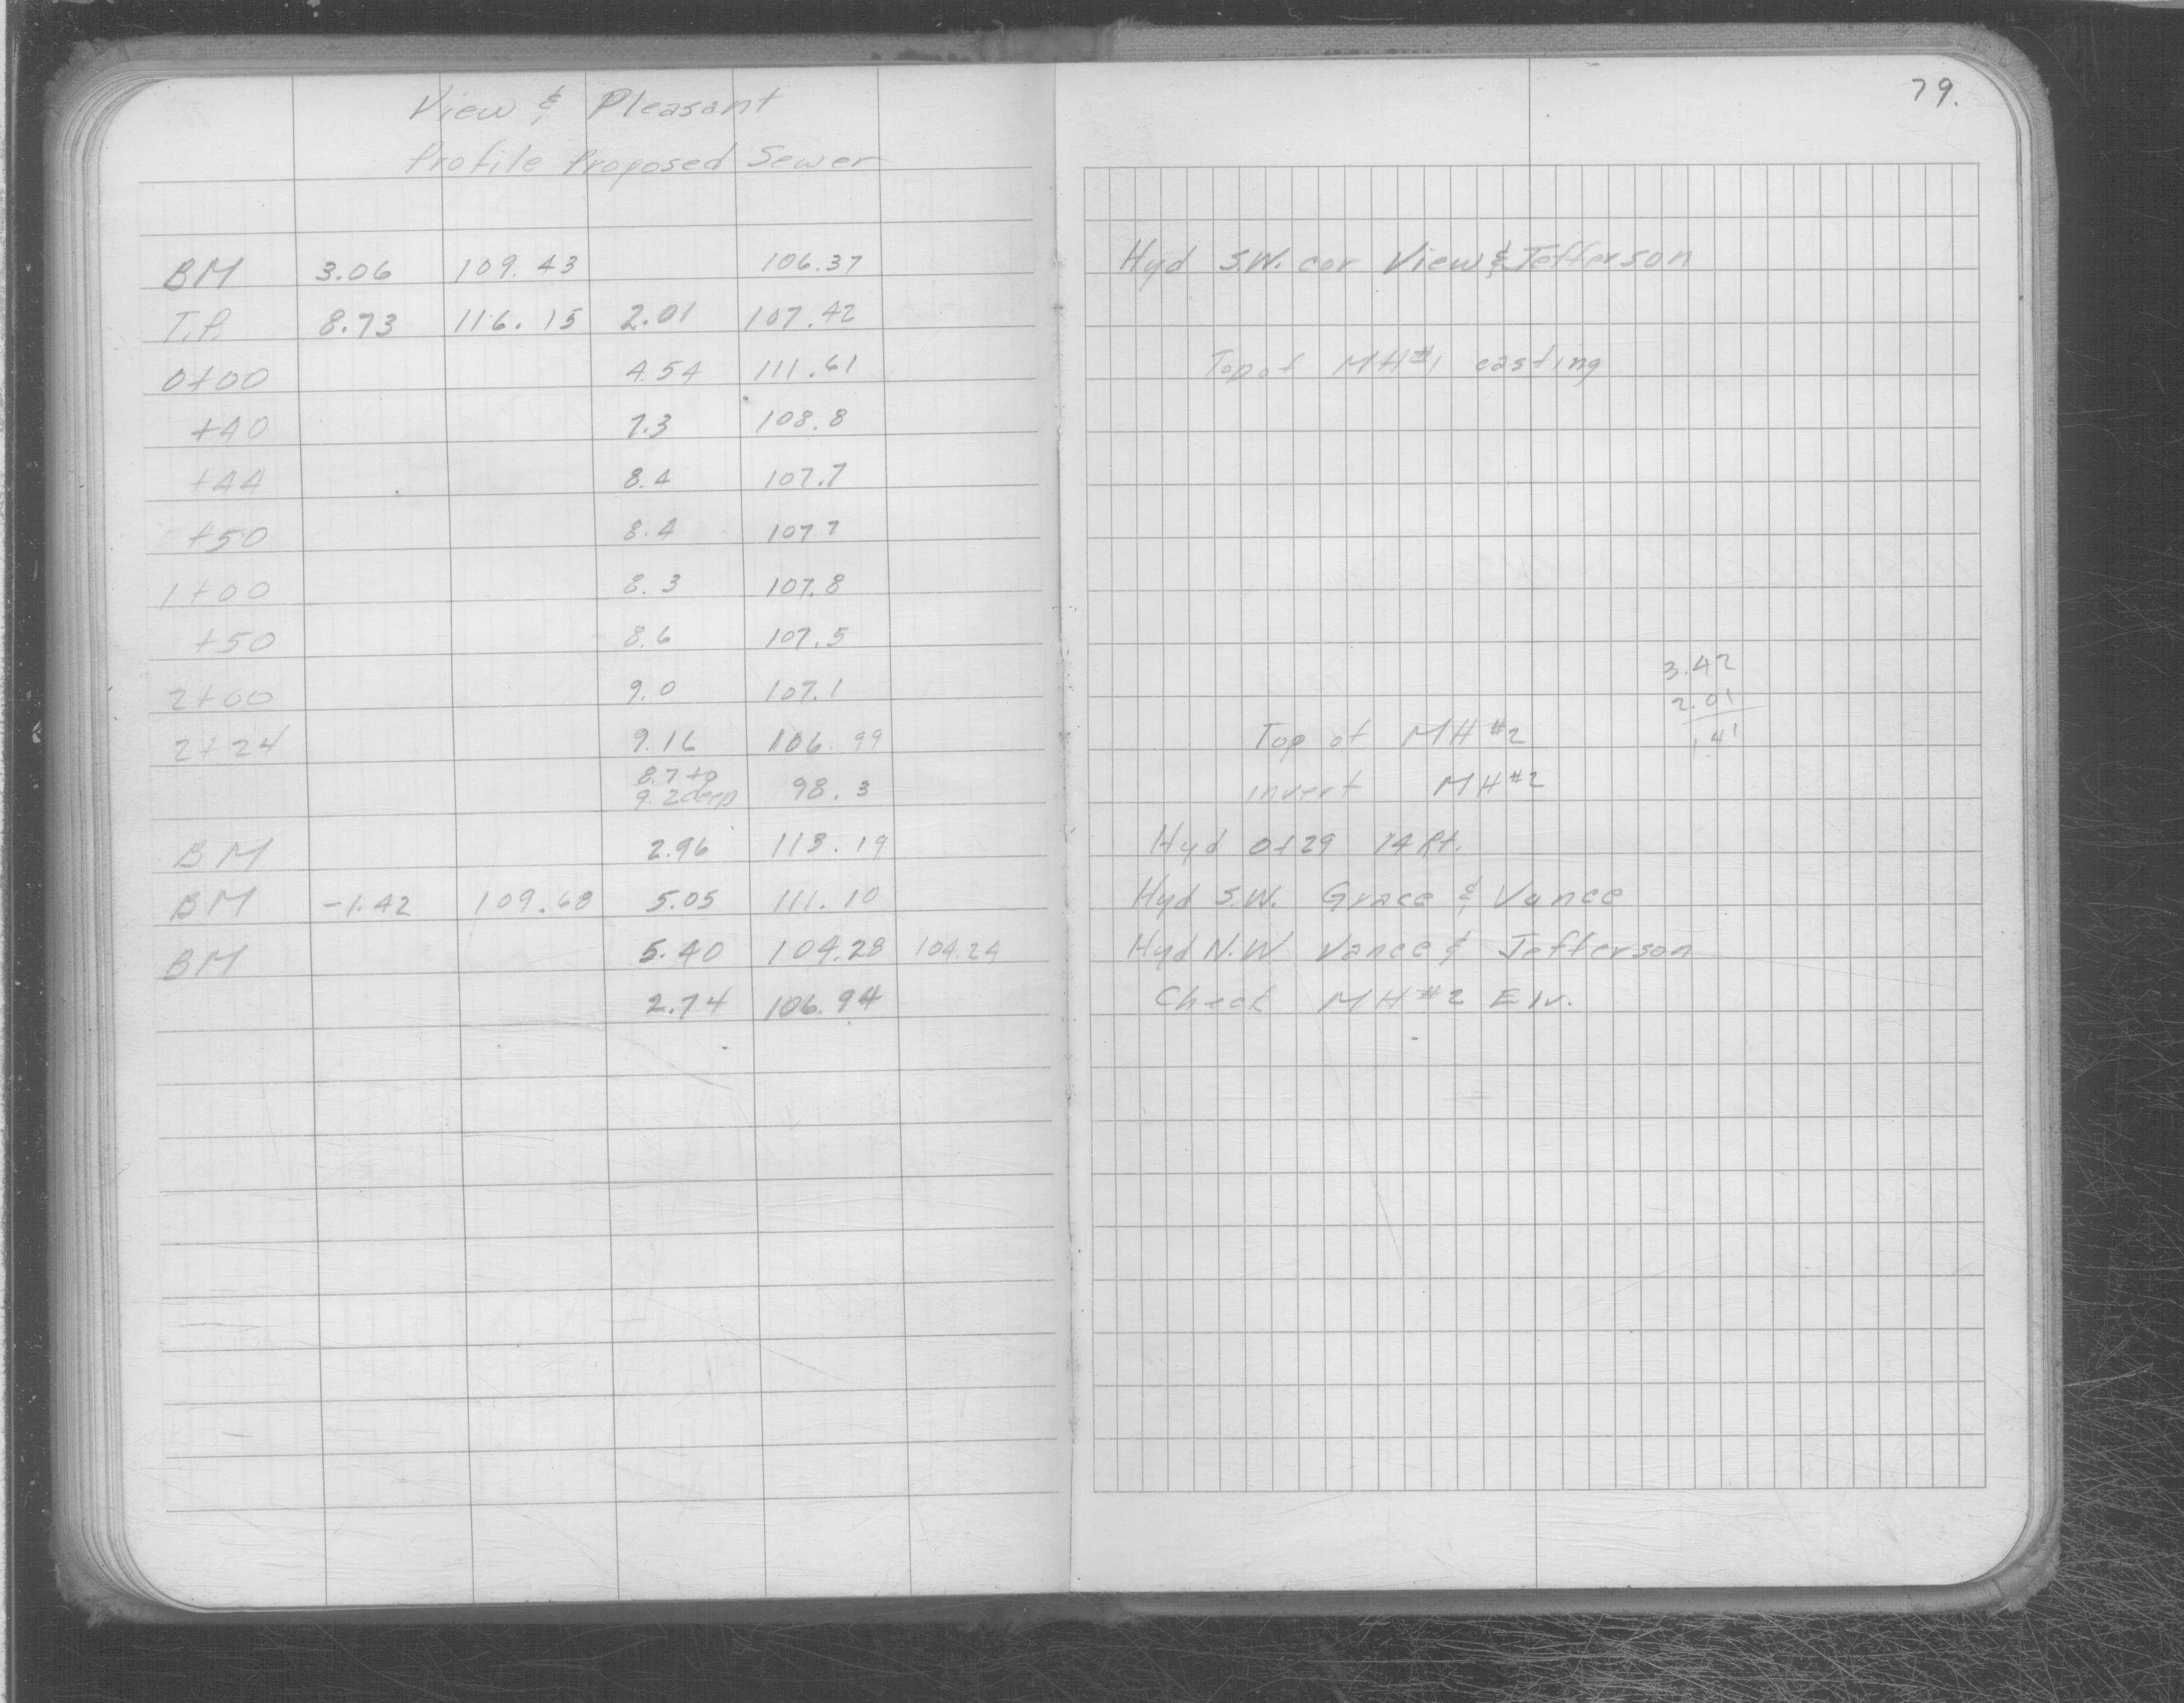 79.
View & Pleasant
Profile Proposed Sewer
BM 3.06 109.43 106.37 Hyd S.W. cor View & Jefferson
T.P. 8.73 116.15 2.01 107.42
0+00 4.54 111.61 Top of MH#1 casting
+40 7.3 108.8
+44 8.4 107.7
+50 8.4 107.7
1+00 8.3 107.8
+50 8.6 107.5
3.42
2+00 9.0 107.1
2.01
2+24 9.16 106.99 Top of MH #2
1.41
8.7 to
9.2 deep 98.3 invert MH#2
BM 2.96 113.19 Hyd 0+29 14 Rt.
BM -1.42 109.68 5.05 111.10 Hyd S.W. Grace & Vance
BM 5.40 104.28 104.24 Hyd N.W Vance & Jefferson
2.74 106.94 Check MH #2 Elv.